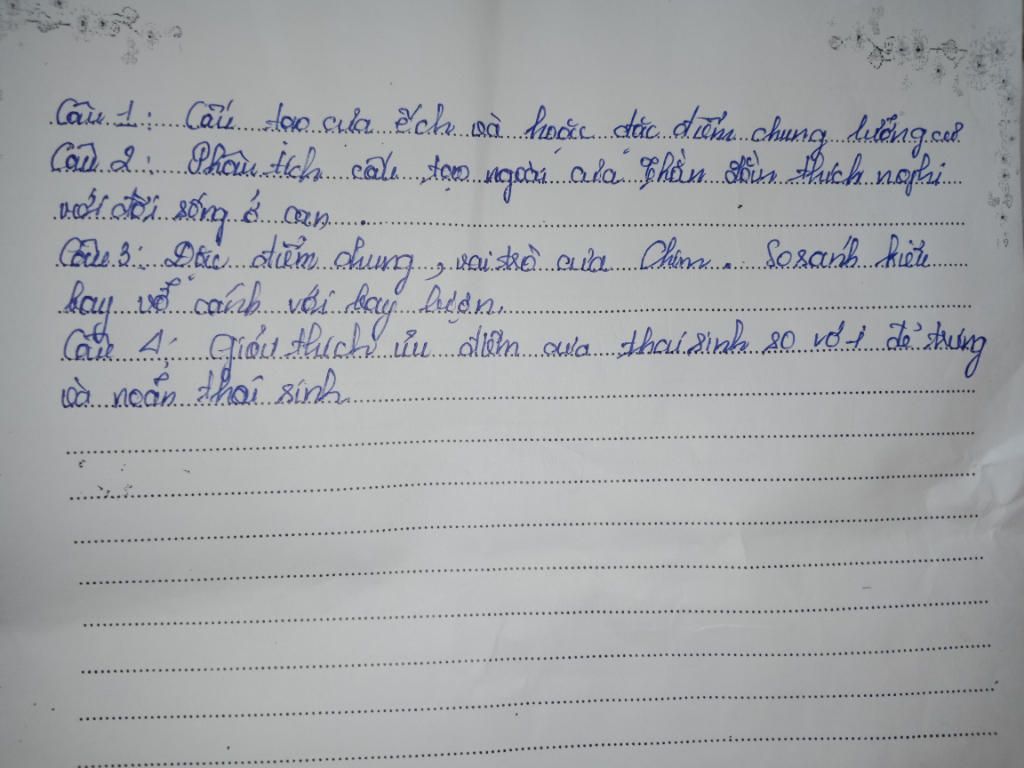 Câu 1: Cấu tạo của ếch và hoặc đặc điểm chung lưỡng cư
Câu 2: Phân tích cấu tạo ngoài của thằn lằn thích nghi
với đời sống ở cạn.
Câu 3: Đặc điểm chung, vai trò của Chim. So sánh kiểu
bay vỗ cánh với bay lượn.
Câu 4: Giải thích ưu điểm của thai sinh so với đẻ trứng
và noãn thai sinh